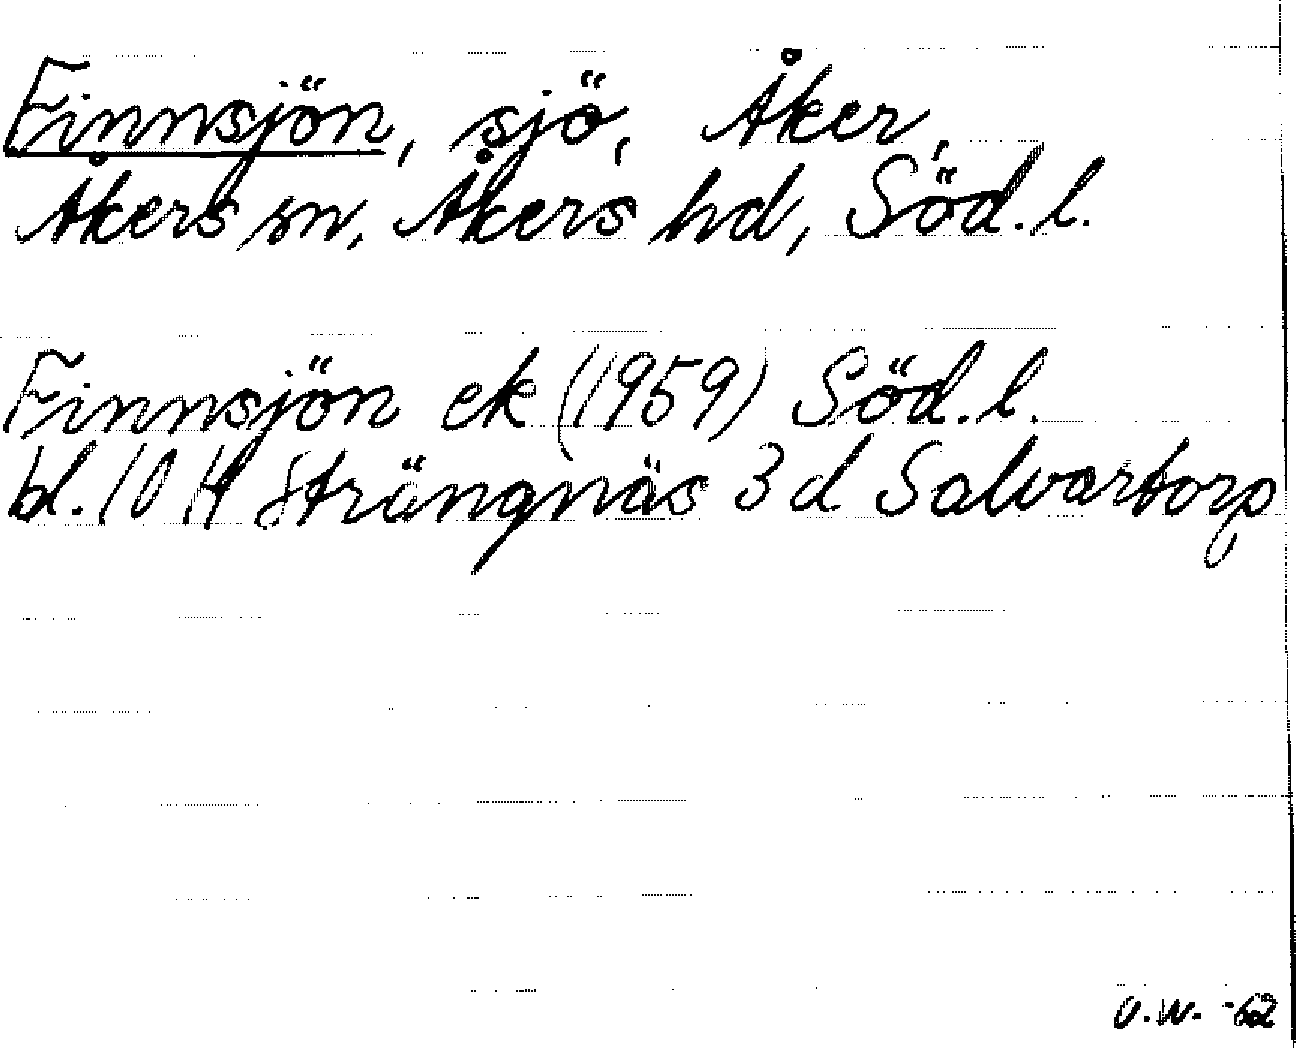 Finnsjön, sjö, Åker,
Åkers sn, Åkers hd, Söd. l.
Finnsjön ek (1959) Söd. l.
bl. 10 H Strängnäs 3 d Salvartorp
U.W. -62